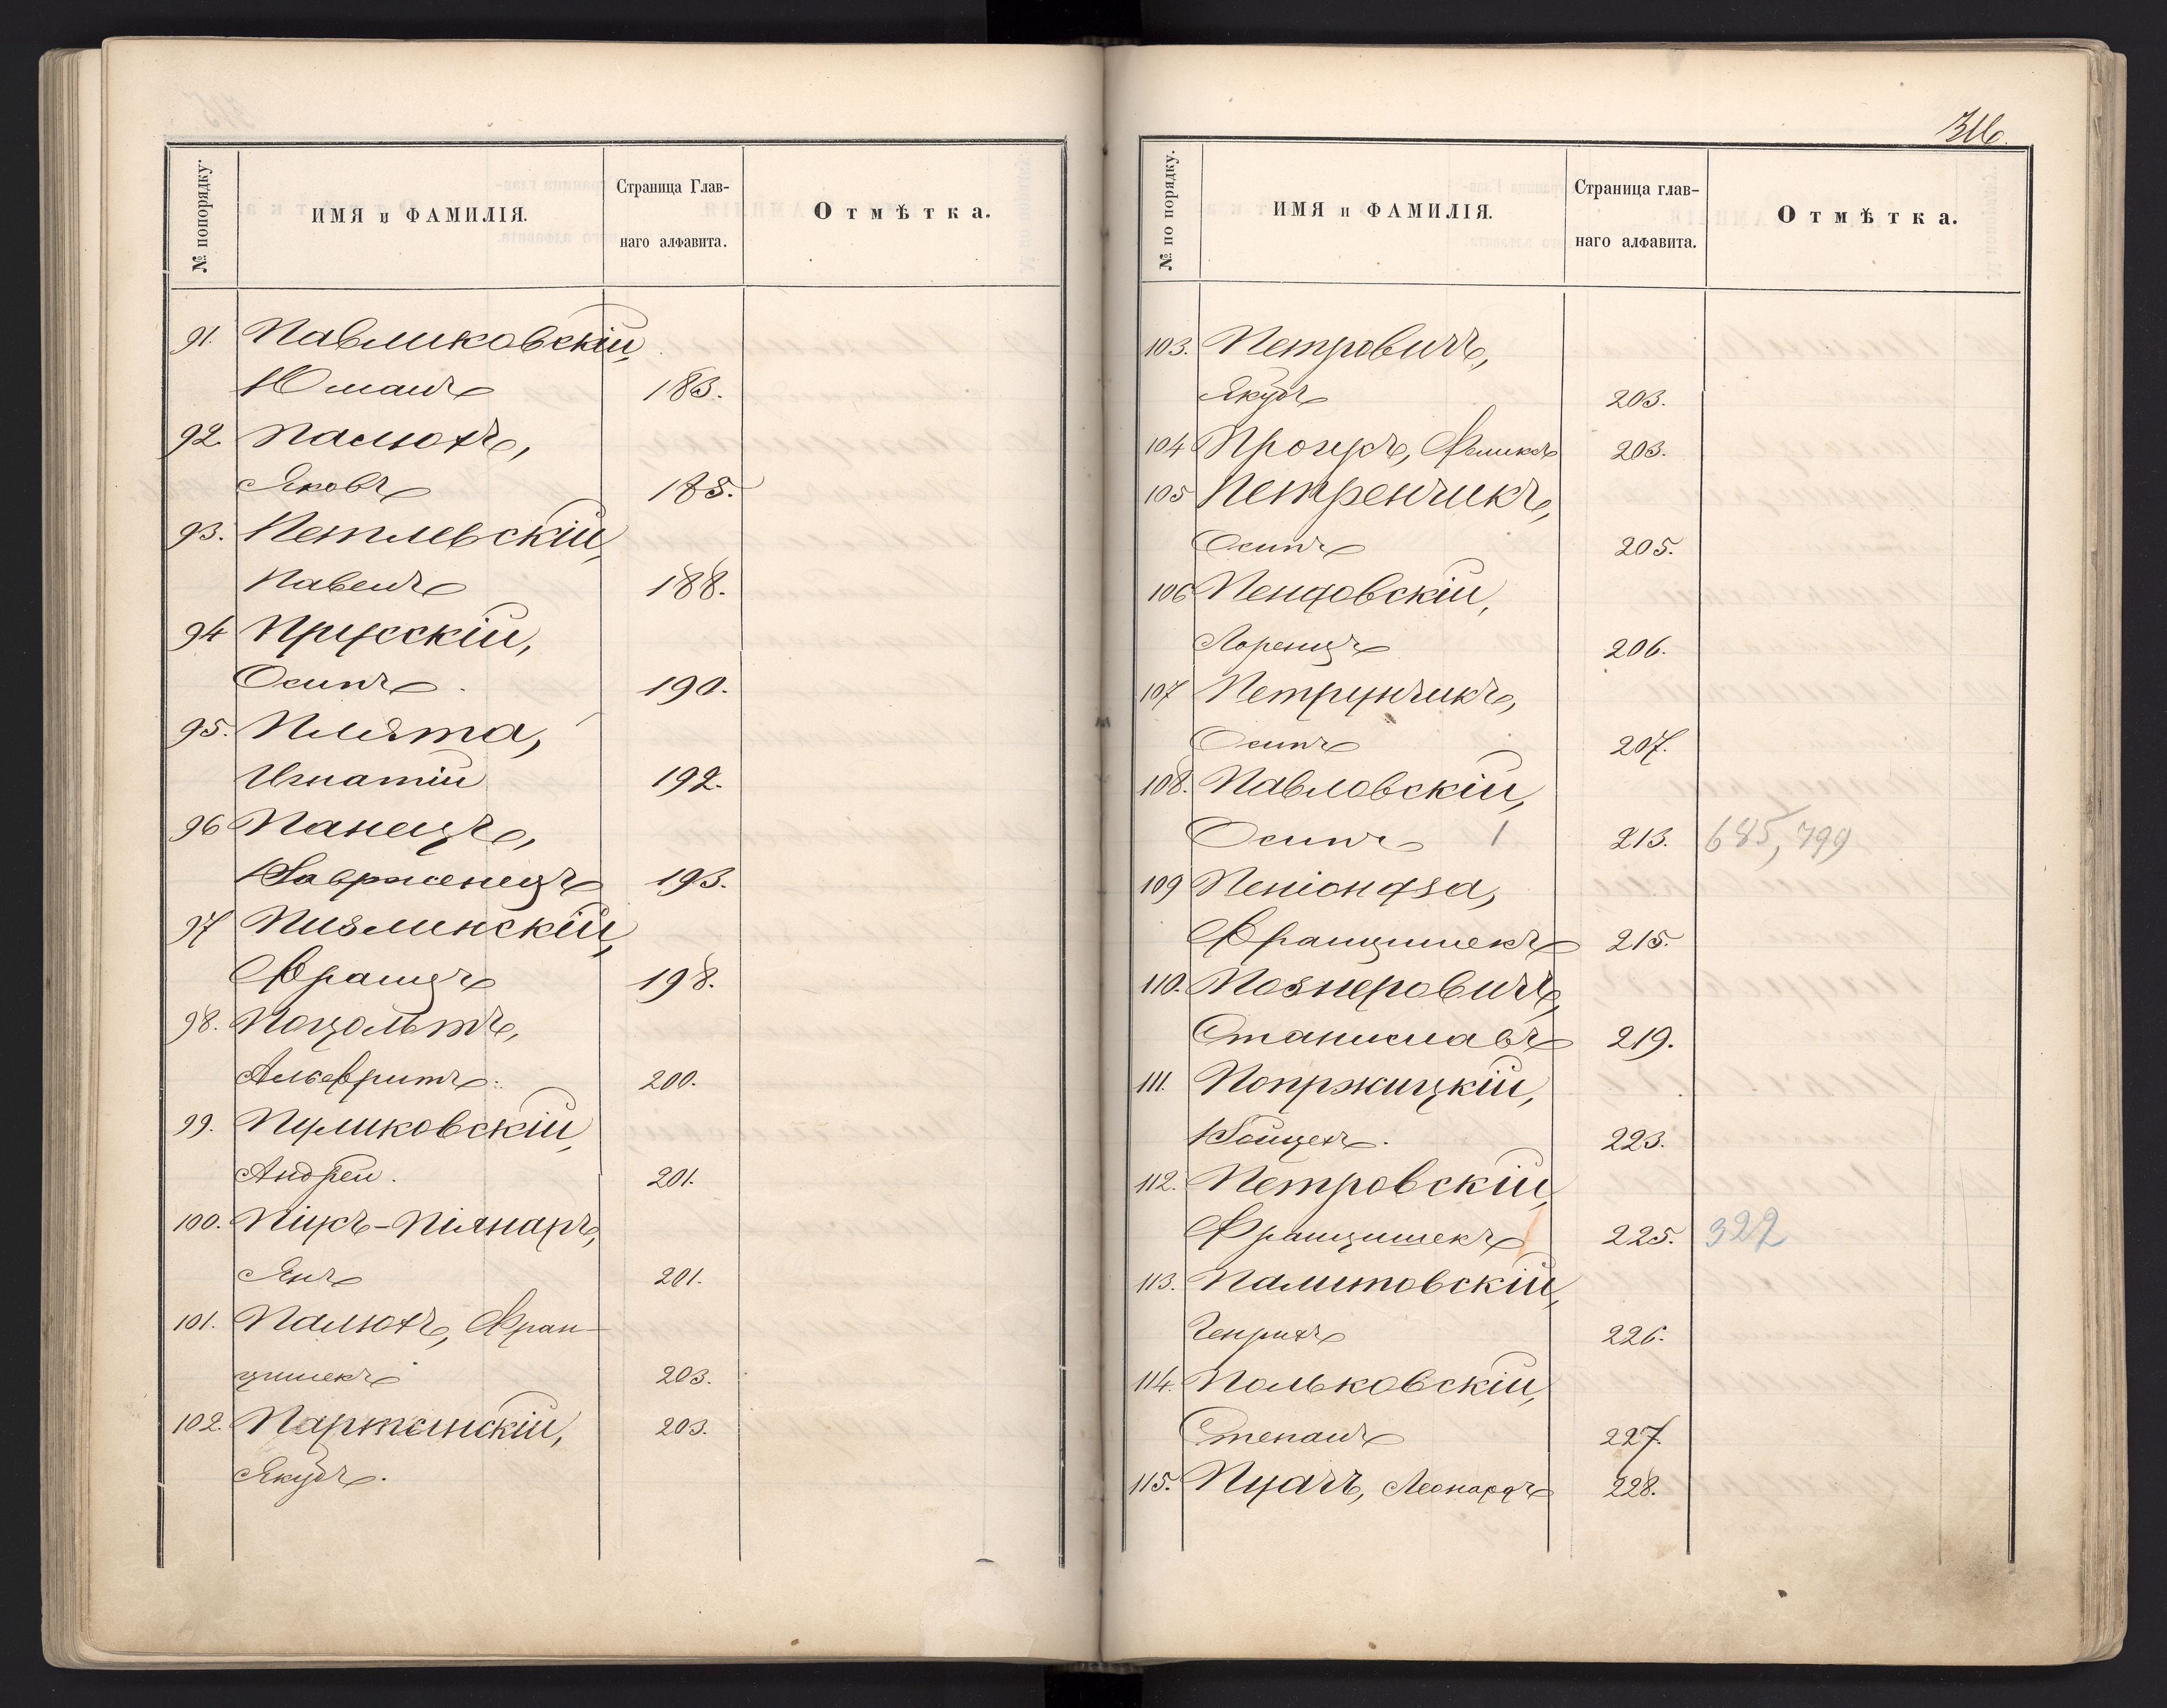 № попорядку.
ИМЯ и ФАМИЛІЯ.
Страница Глав-
наго алфавита.
Отмѣтка.
91. Павликовскій,
Юліанъ 183.
92. Палюхъ,
Яковъ 185.
93. Петлевскій,
Павелъ 188.
94 Прусскій,
Осипъ. 190.
95. Плята,
Игнатій 192.
96 Панецъ,
Ваврженецъ 193.
97 Пизлинскій,
Францъ 198.
98. Поцольтъ,
200.
99. Пуликовскій,
Андрей. 201.
100. Піусъ-Піянаръ,
Янъ 201.
101. Палюхъ, Фран-
цишекъ 203.
102. Партенскій, 203.
Якубъ.
316.
№ по порядку.
ИМЯ и ФАМИЛІЯ.
Страница глав-
наго алфавита.
Отмѣтка.
103. Петровичъ,
Якубъ 203.
104 Феликсъ 203.
105 Петренчикъ,
Осипъ 205.
106 Пендовскій,
Лоренцъ 206.
107 Петрунчикъ,
Осипъ 207.
108. Павловскій,
Осипъ 1 213. 685, 799
109 Пеніондза,
Францишекъ 215.
110. Познеровичъ,
Станиславъ 219.
111. Попржицкій,
Войцехъ. 223.
112. Петровскій,
Францишекъ 225. 322
113. Палитовскій,
Генрихъ 226.
114. Польковскій,
Степанъ 227.
115. Пуачъ, Леонардъ 228.